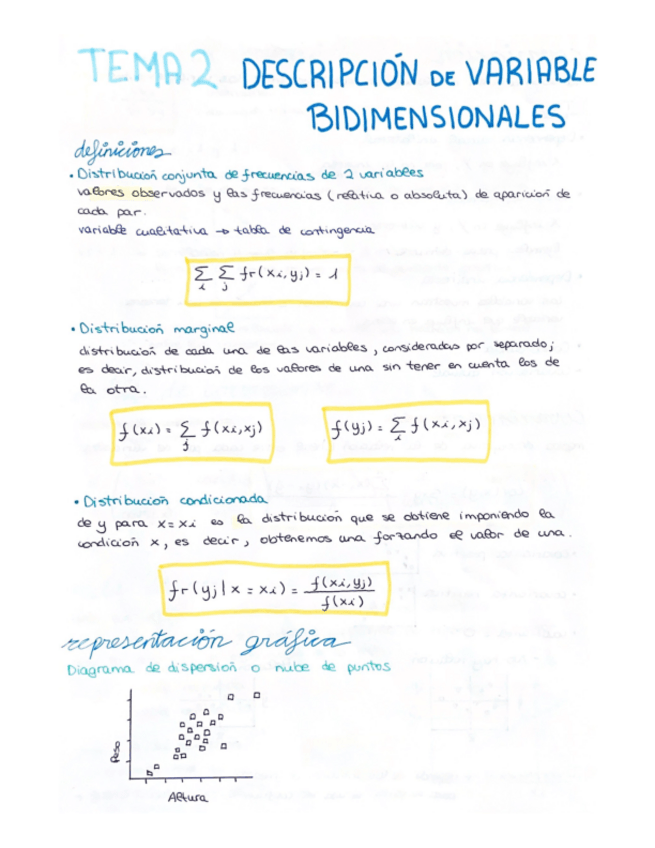 TEMA 2 DESCRIPCIÓN DE VARIABLE
BIDIMENSIONALES
definiciones
• Distribución conjunta de frecuencias de 2 variables
valores observados y las frecuencias (relativa o absoluta) de aparición de
cada par.
variable cualitativa → tabla de contingencia
∑i ∑j fr(xi, yj) = 1
• Distribución marginal
distribución de cada una de las variables, consideradas por separado;
es decir, distribución de los valores de una sin tener en cuenta los de
la otra.
f(xi) = ∑j f(xi, xj)
f(yj) = ∑i f(xi, xj)
• Distribución condicionada
de y para x = xi es la distribución que se obtiene imponiendo la
condición x, es decir, obtenemos una forzando el valor de una.
fr(yj | x = xi) = f(xi, yj) / f(xi)
representación gráfica
Diagrama de dispersión o nube de puntos
Peso
Altura